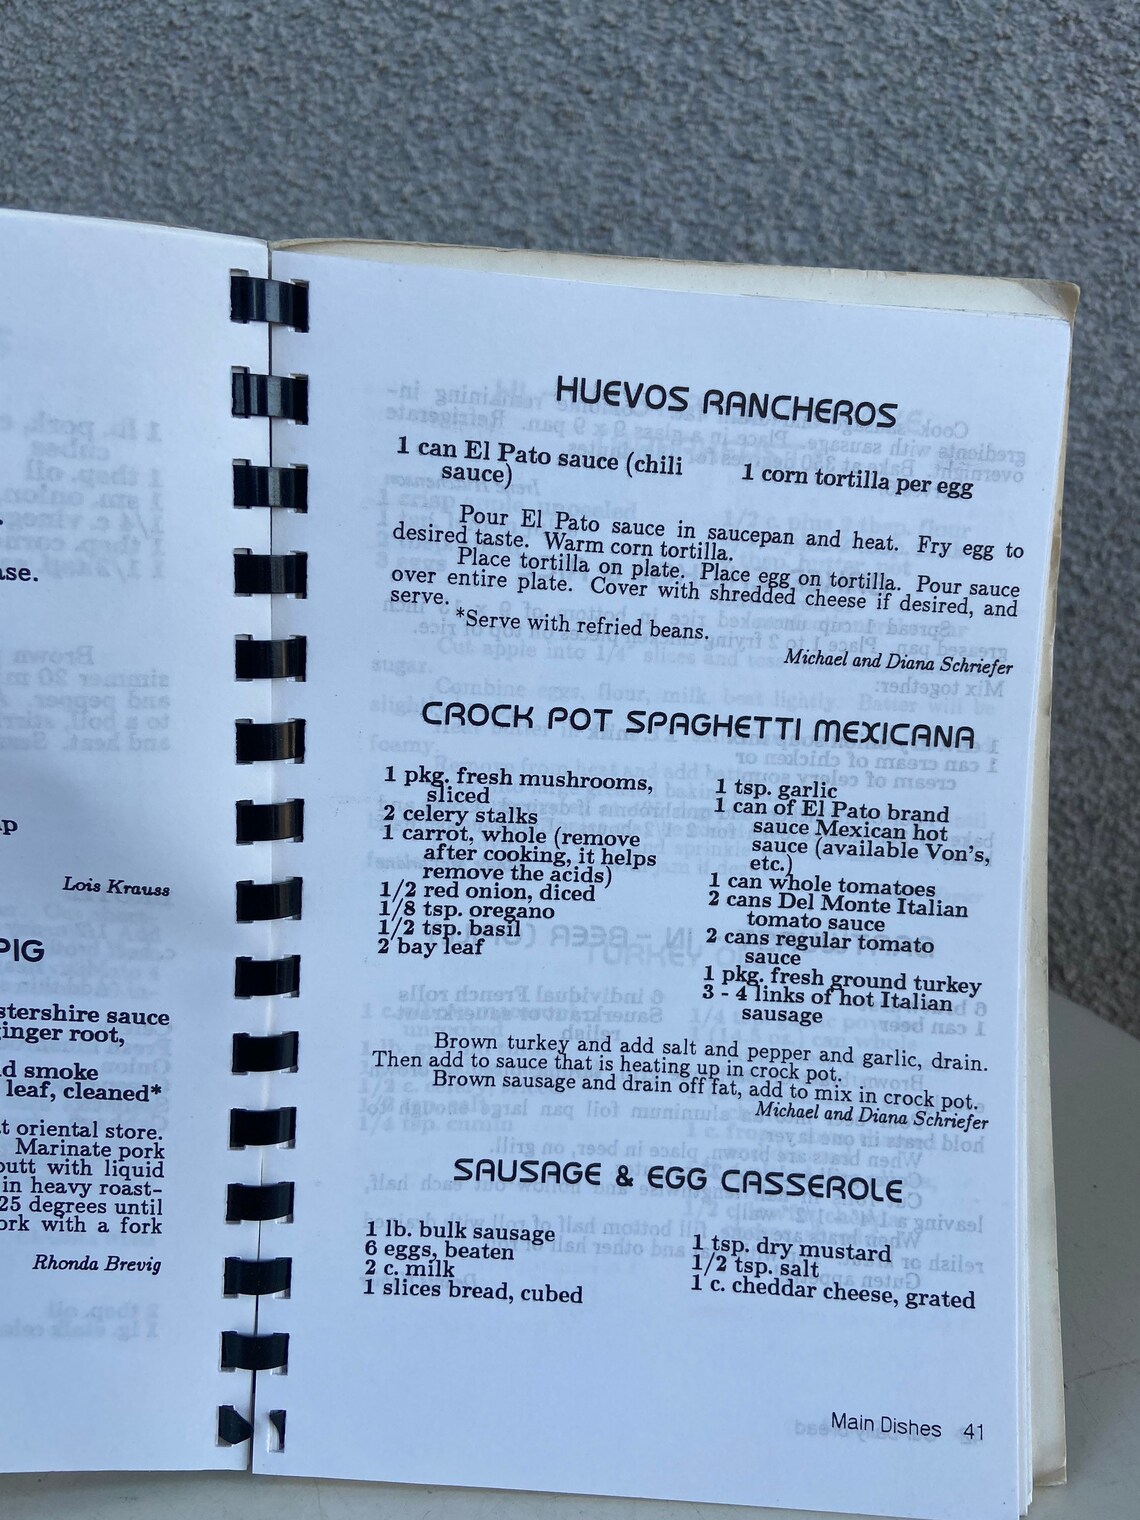 ase.
Lois Krauss
PIG
stershire sauce
ginger root,
d smoke
leaf, cleaned*
t oriental store.
Marinate pork
butt with liquid
in heavy roast-
25 degrees until
ork with a fork
Rhonda Brevig
HUEVOS RANCHEROS
1 can El Pato sauce (chili
sauce)
1 corn tortilla per egg
Pour El Pato sauce in saucepan and heat. Fry egg to
desired taste. Warm corn tortilla.
Place tortilla on plate. Place egg on tortilla. Pour sauce
over entire plate. Cover with shredded cheese if desired, and
serve.
*Serve with refried beans.
Michael and Diana Schriefer
CROCK POT SPAGHETTI MEXICANA
1 pkg. fresh mushrooms,
sliced
2 celery stalks
1 carrot, whole (remove
after cooking, it helps
remove the acids)
1/2 red onion, diced
1/8 tsp. oregano
1/2 tsp. basil
2 bay leaf
1 tsp. garlic
1 can of El Pato brand
sauce Mexican hot
sauce (available Von's,
etc.)
1 can whole tomatoes
2 cans Del Monte Italian
tomato sauce
2 cans regular tomato
sauce
1 pkg. fresh ground turkey
3 - 4 links of hot Italian
sausage
Brown turkey and add salt and pepper and garlic, drain.
Then add to sauce that is heating up in crock pot.
Brown sausage and drain off fat, add to mix in crock pot.
Michael and Diana Schriefer
SAUSAGE & EGG CASSEROLE
1 lb. bulk sausage
6 eggs, beaten
2 c. milk
1 slices bread, cubed
1 tsp. dry mustard
1/2 tsp. salt
1 c. cheddar cheese, grated
Main Dishes 41